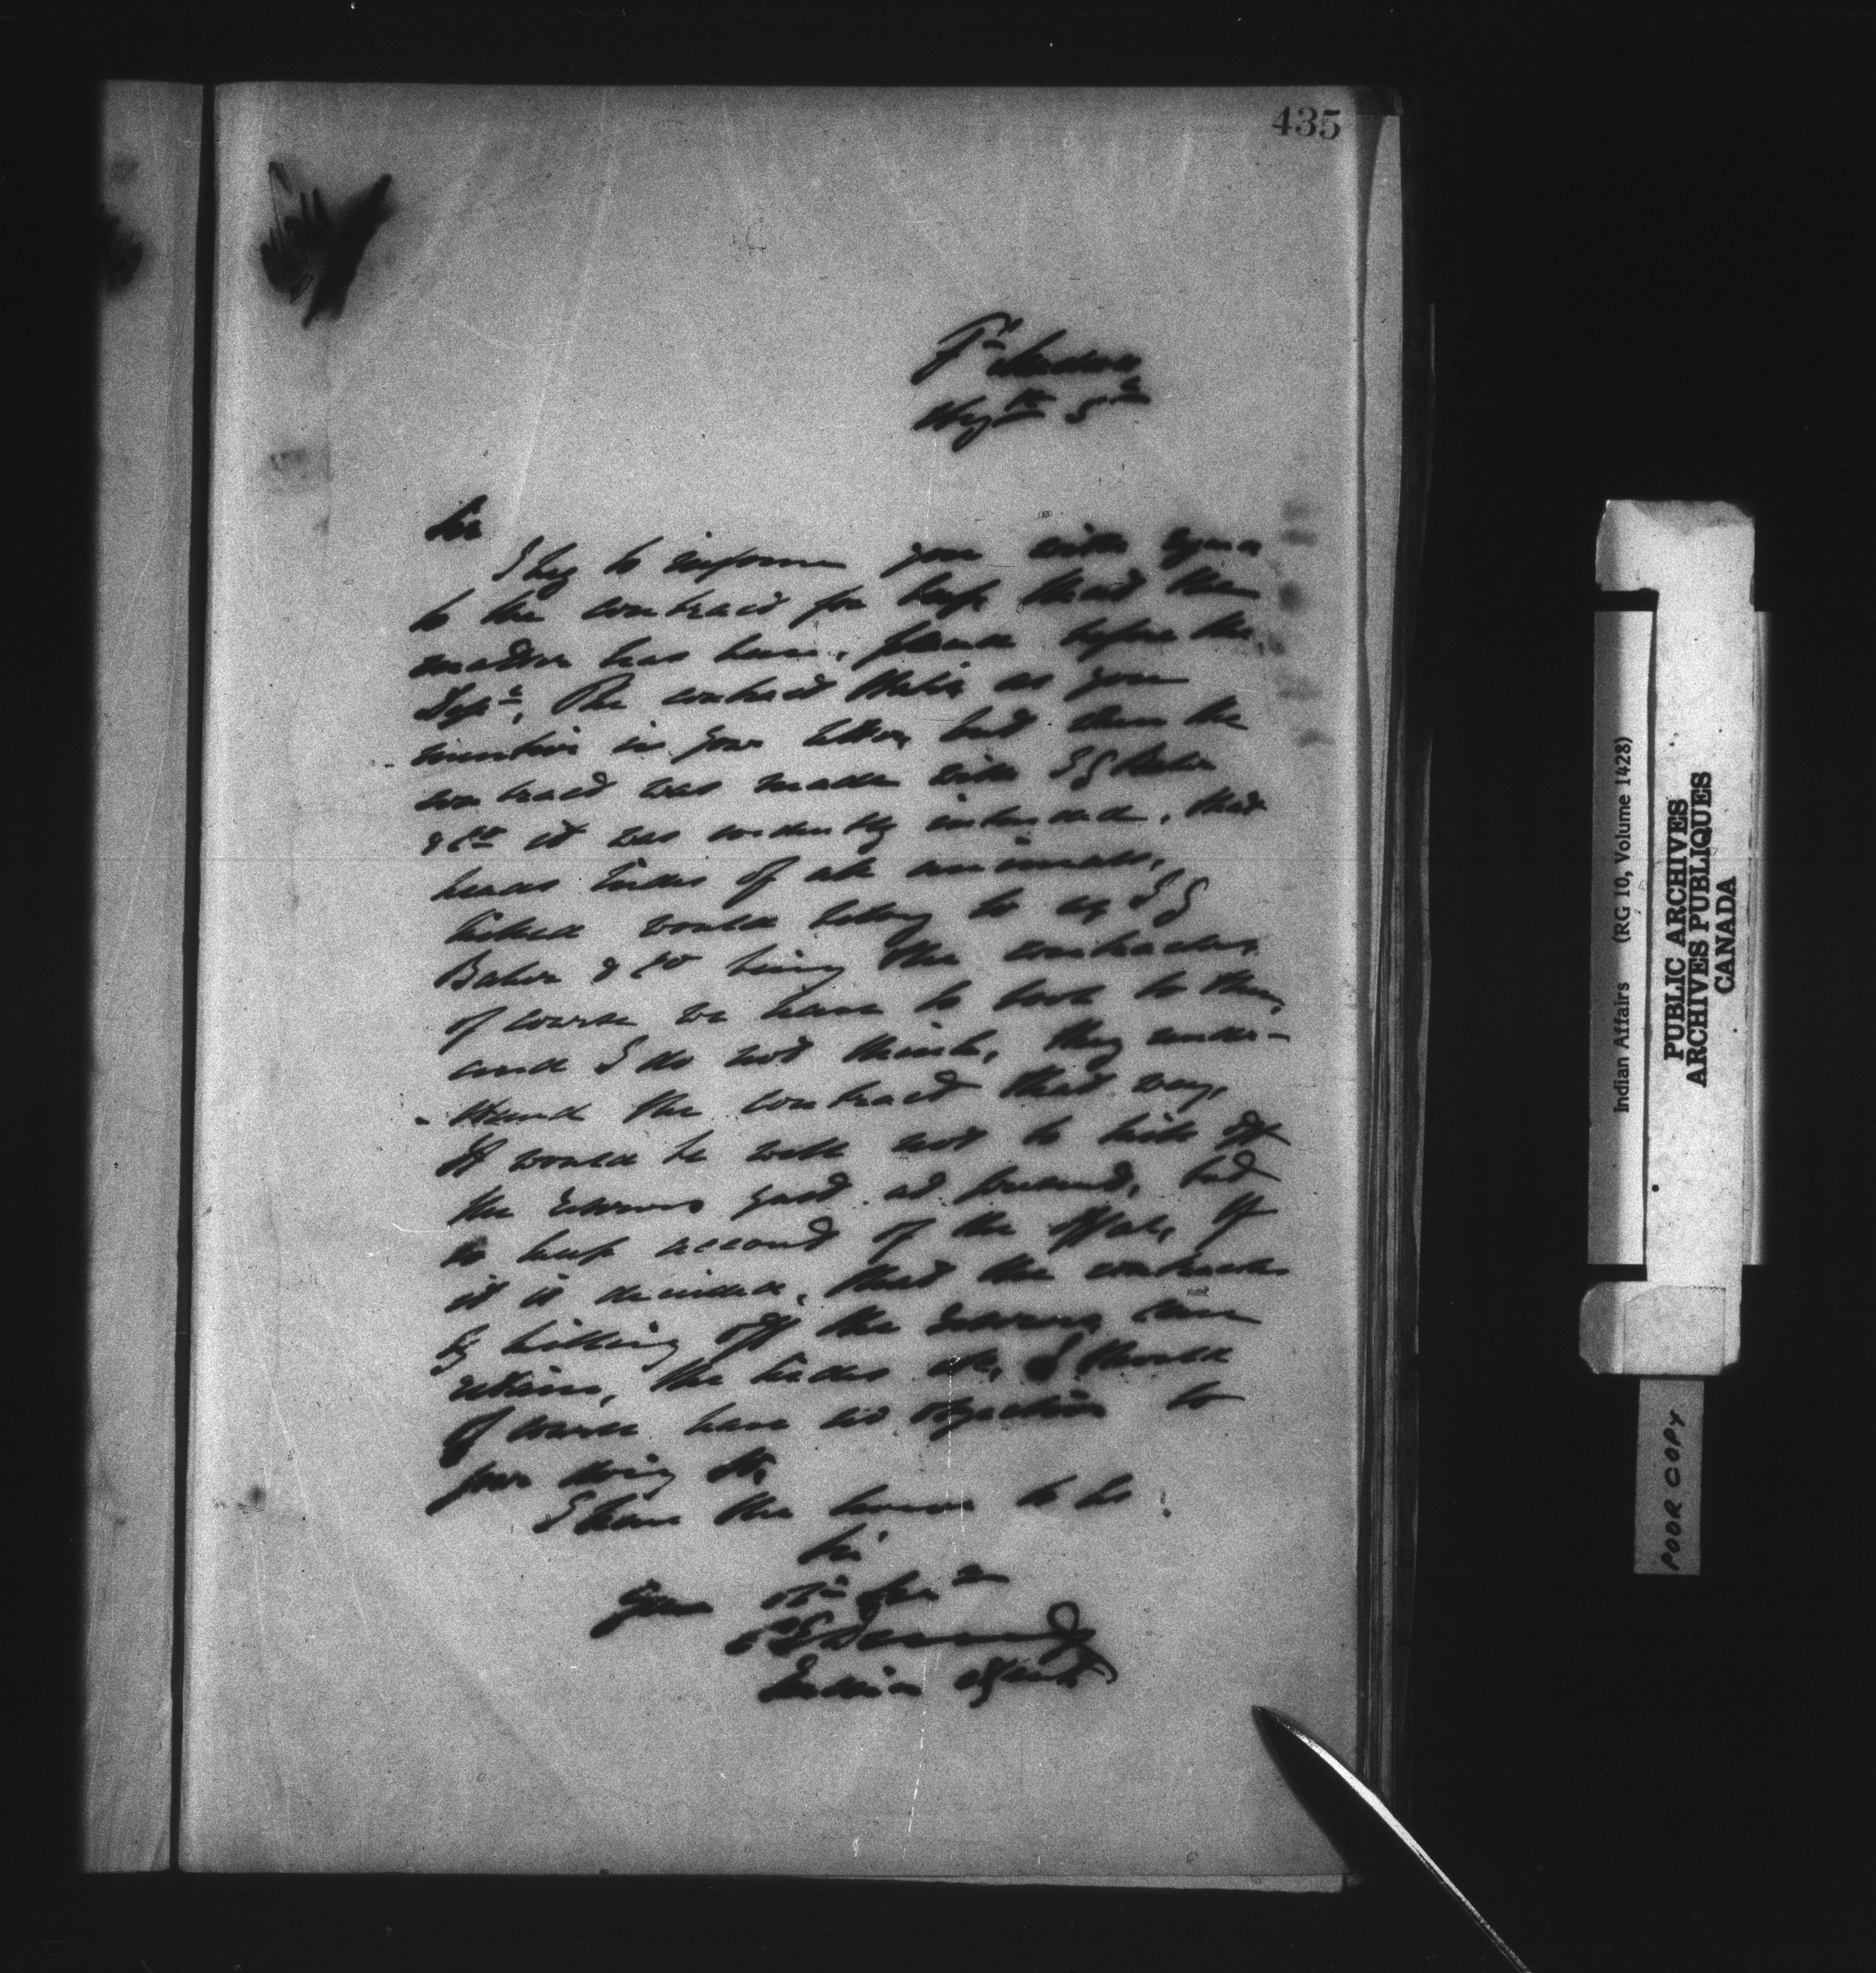 435
Ft Macleod
Sir
I beg to inform you with regard
to the contract for beef, that the
matter has been placed before the
Dept. The contract states as you
mention in your letter, but when the
contract was made with I G Baker
& Co it was evidently intended, that
heads hides of all animals,
killed would belong to us, I G
Baker & Co being the contractors,
of course we have to look to them,
and I do not think, they under-
stand the contract that way,
It would be well not to kill off
the reserves just at present, but
to keep account of the offal, If
it is decided, that the contractors
by killing off the reserves can
retain, the hides &c, I should
of course have no objection to
your doing so,
I have the honor to be
Sir
Your Obt Servt
C E Denny
Indian Agent
Indian Affairs (RG 10, Volume 1428)
PUBLIC ARCHIVES
ARCHIVES PUBLIQUES
CANADA
POOR COPY